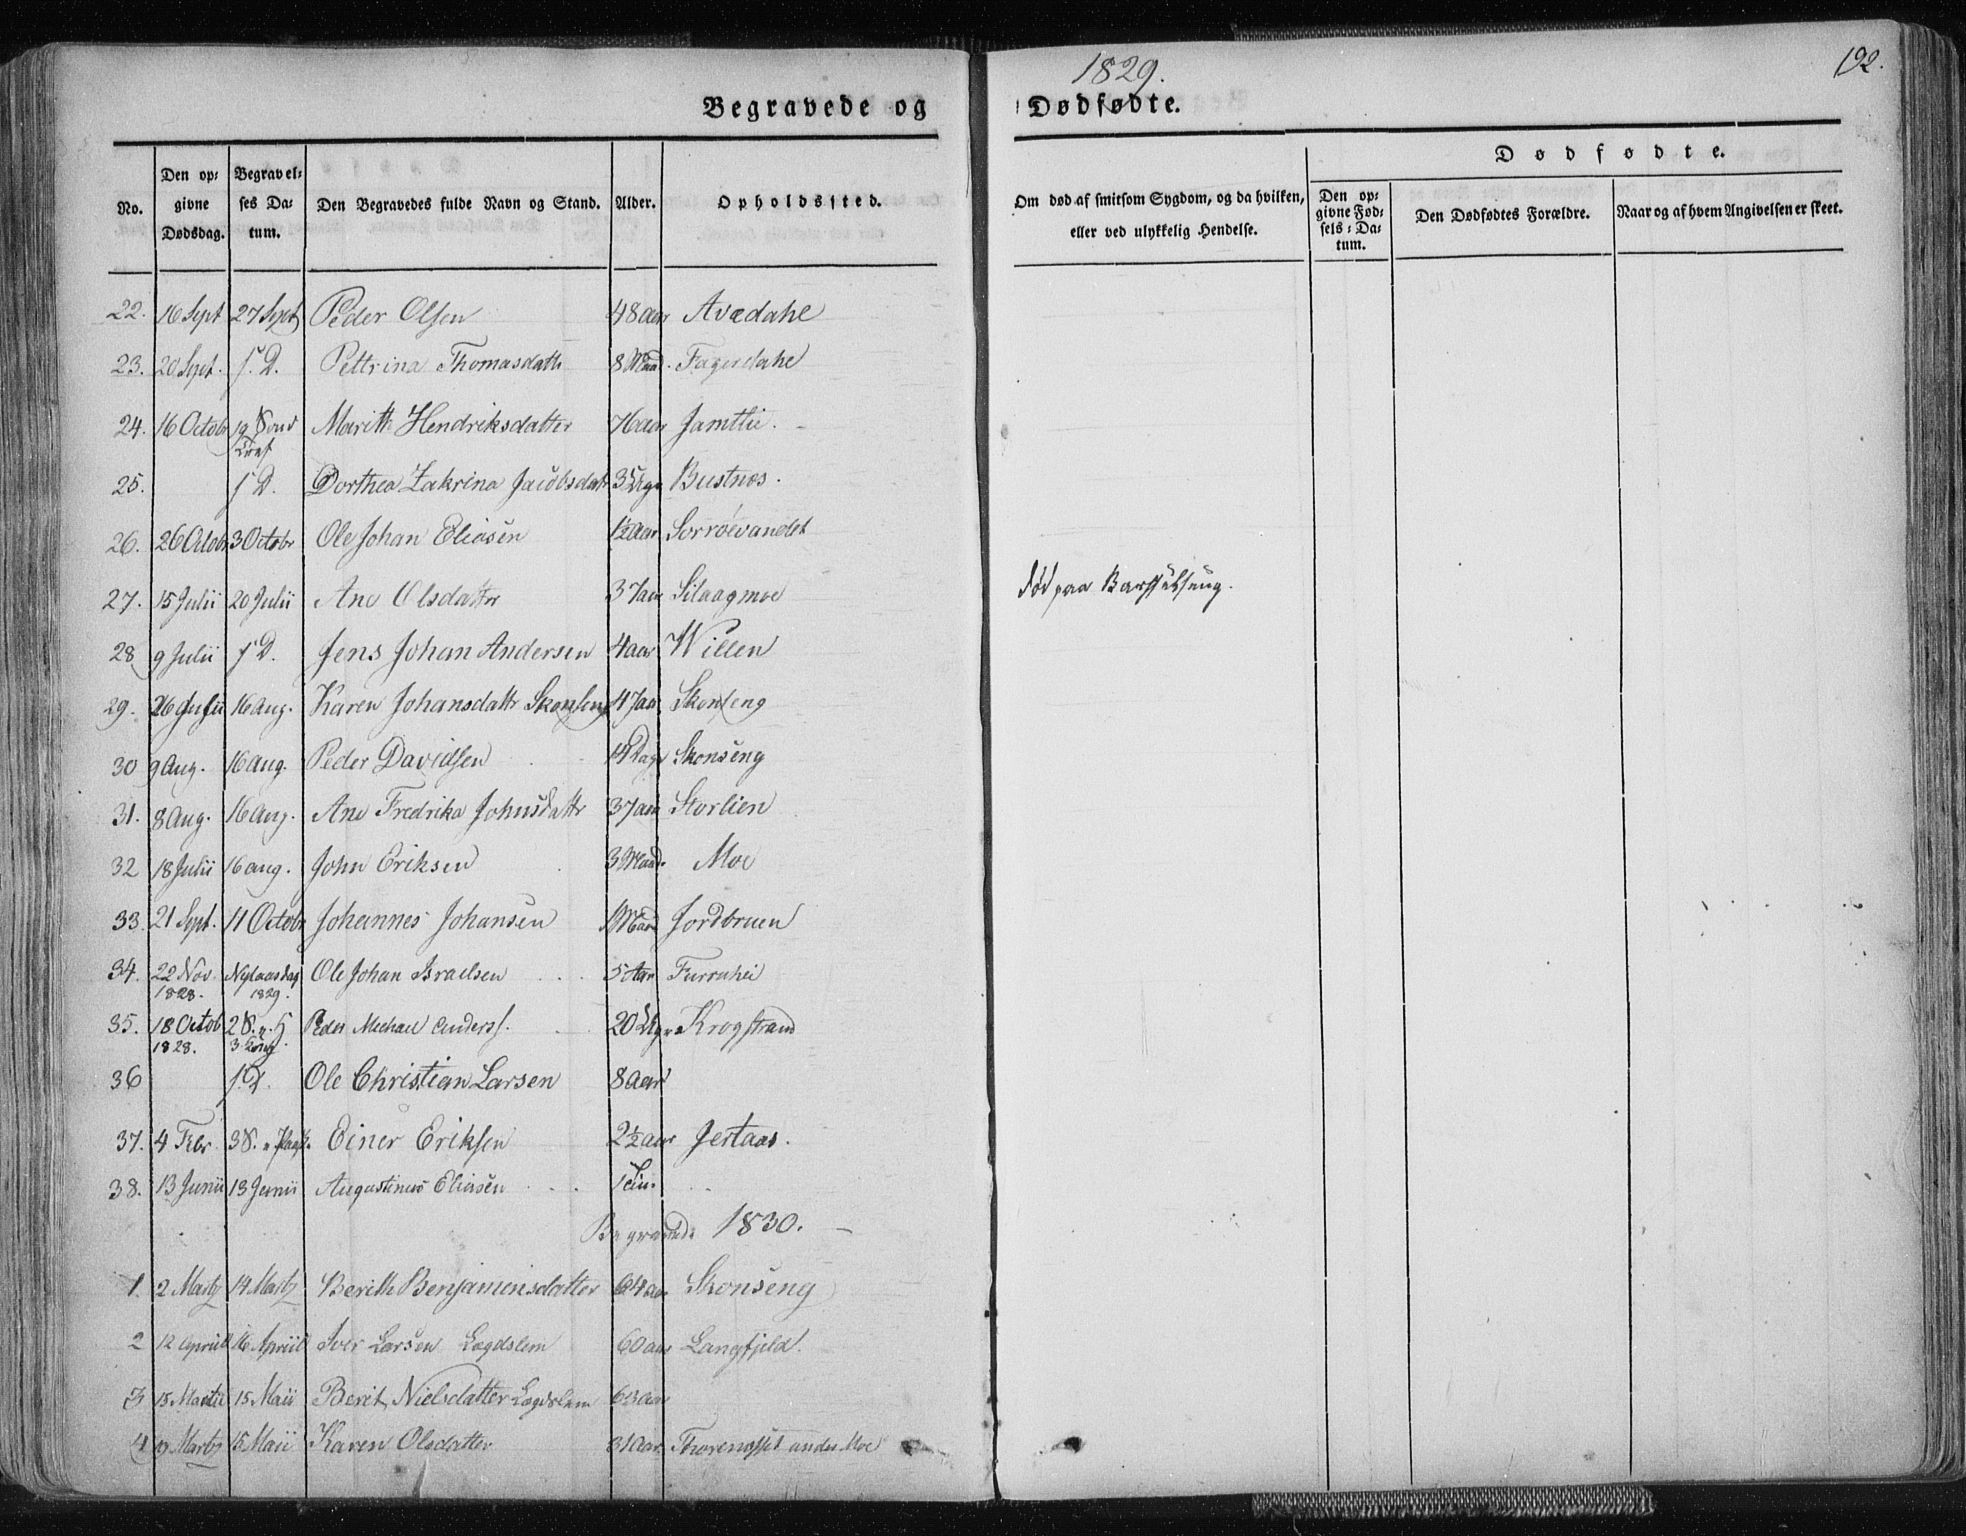 1829.
192.
Begravede og Dødfødte.
No. Den opgivne Dødsdag. Begravelses Datum. Den Begravedes fulde Navn og Stand. Alder. Opholdssted. Om død af smitsom Sygdom, og da hvilken, eller ved ulykkelig Hendelse. Dødfødte. Den opgivne Fødsels-Datum. Den Dødfødtes Forældre. Naar og af hvem Angivelsen er skeet.
22. 16 Sept 27 Sept Peder Olsen 48 aar Avedahl
23. 20 Sept. s. D. Pettrina Thomasdattr 8 Maad. Fagerdahl
24. 16 Octobr 19 Sønd Marith Hendriksdatter 76 aar Jamtlie.
25. s D. Dorthea Zakrina Jacobsdatr 3 Uger Bustnes.
26. 26 Octobr 3 Octobr Ole Johan Eliasen 1½ Aar Sorrøevandet
27. 15 Julii 20 Julii Ane Olsdattr 37 aar Silaagmoe død paa Barselseng.
28 9 Julii s D. Jens Johan Andersen 4 aar Willen
29. 26 Julii 16 Aug. Karen Johansdattr Skonseng 47 aar Skonseng
30 9 Aug. 16 Aug. Peder Davidsen 14 Dage Skonseng
31. 8 Aug. 16 Aug. Ane Fredrika Johnsdattr 37 aar Storlien
32 18 Julii 16 aug. John Eriksen 3 Maad. Moe
33. 21 Sept. 11 Octobr Johannes Johansen 1 Maad Jordbruen
34. 22 Nov. 1828. Nytaarsdag 1829. Ole Johan Israelsen 5 Aar Furruhei
35. 18 Octob 1828. 2 S. 3 Kong Peder Michael Anderss. 20 Uger Krogstrand
36 s. D. Ole Christian Larsen 8 aar
37. 4 Febr. 3 S. Paask. Einer Eriksen 2½ aar Jertaas.
38. 13 Junii 13 Junii Augustinus Eliasen
Begravede 1830.
1. 2 Martz 14 Martz Berith Benjaminsdatter 64 aar Skonseng
2 12 April 16 April Iver Larsen Lægdslem 60 aar Langfjeld.
3 15 Maii Berit Nielsdatter Lægdslem 63 aar
4 Martz 15 Maii Karen Olsdatter 31 Aar. under Moe